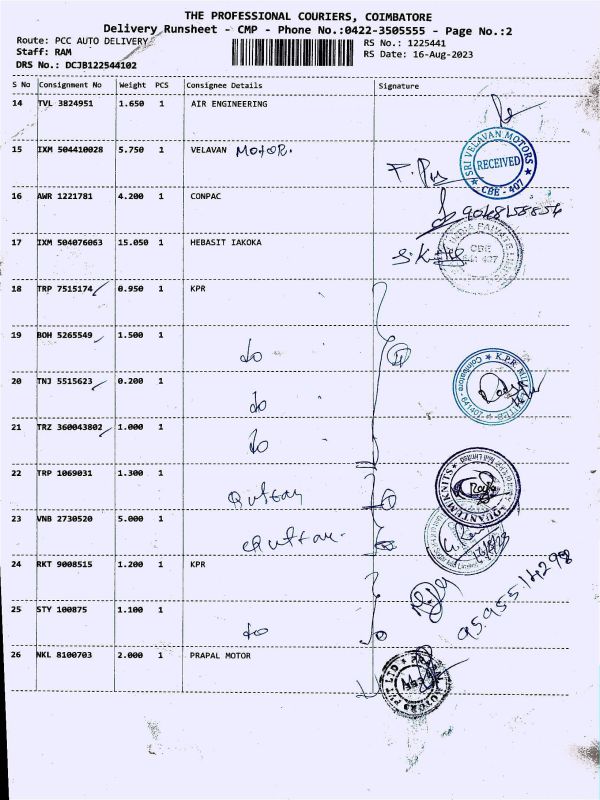 THE PROFESSIONAL COURIERS, COIMBATORE
Delivery Runsheet - CMP - Phone No.:0422-3505555 - Page No.:2
Route: PCC AUTO DELIVERY RS No.: 1225441
Staff: RAM RS Date: 16-Aug-2023
DRS No.: DCJB122544102
S No Consignment No Weight PCS Consignee Details Signature
14 TVL 3824951 1.650 1 AIR ENGINEERING
15 IXM 504410028 5.750 1 VELAVAN MOTOR.
SRI VELAVAN MOTORS
RECEIVED
CBE - 407
16 AWR 1221781 4.200 1 CONPAC
9048158856
17 IXM 504076063 15.050 1 HEBASIT IAKOKA
CBE
641 407
18 TRP 7515174 0.950 1 KPR
19 BOH 5265549 1.500 1 do
4
20 TNJ 5515623 0.200 1 do
K.P.R.
Coimbatore - 641407
21 TRZ 360043802 1.000 1 do
22 TRP 1069031 1.300 1
QUANTUM KNITS
23 VNB 2730520 5.000 1
24 RKT 9008515 1.200 1 KPR
9595514298
25 STY 100875 1.100 1 do
26 NKL 8100703 2.000 1 PRAPAL MOTOR